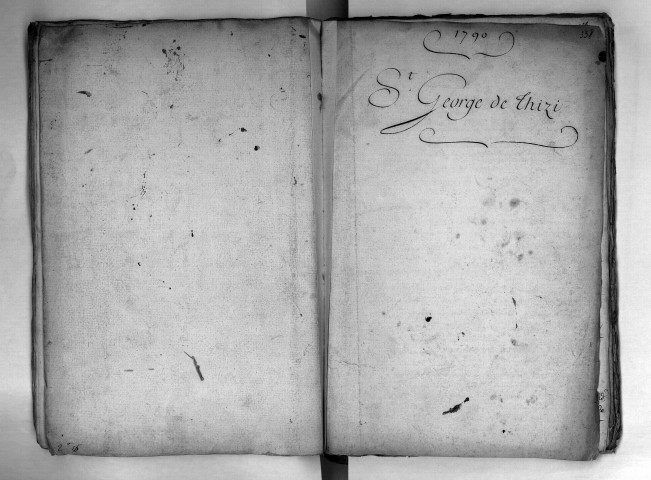 1790
St. George de thizi